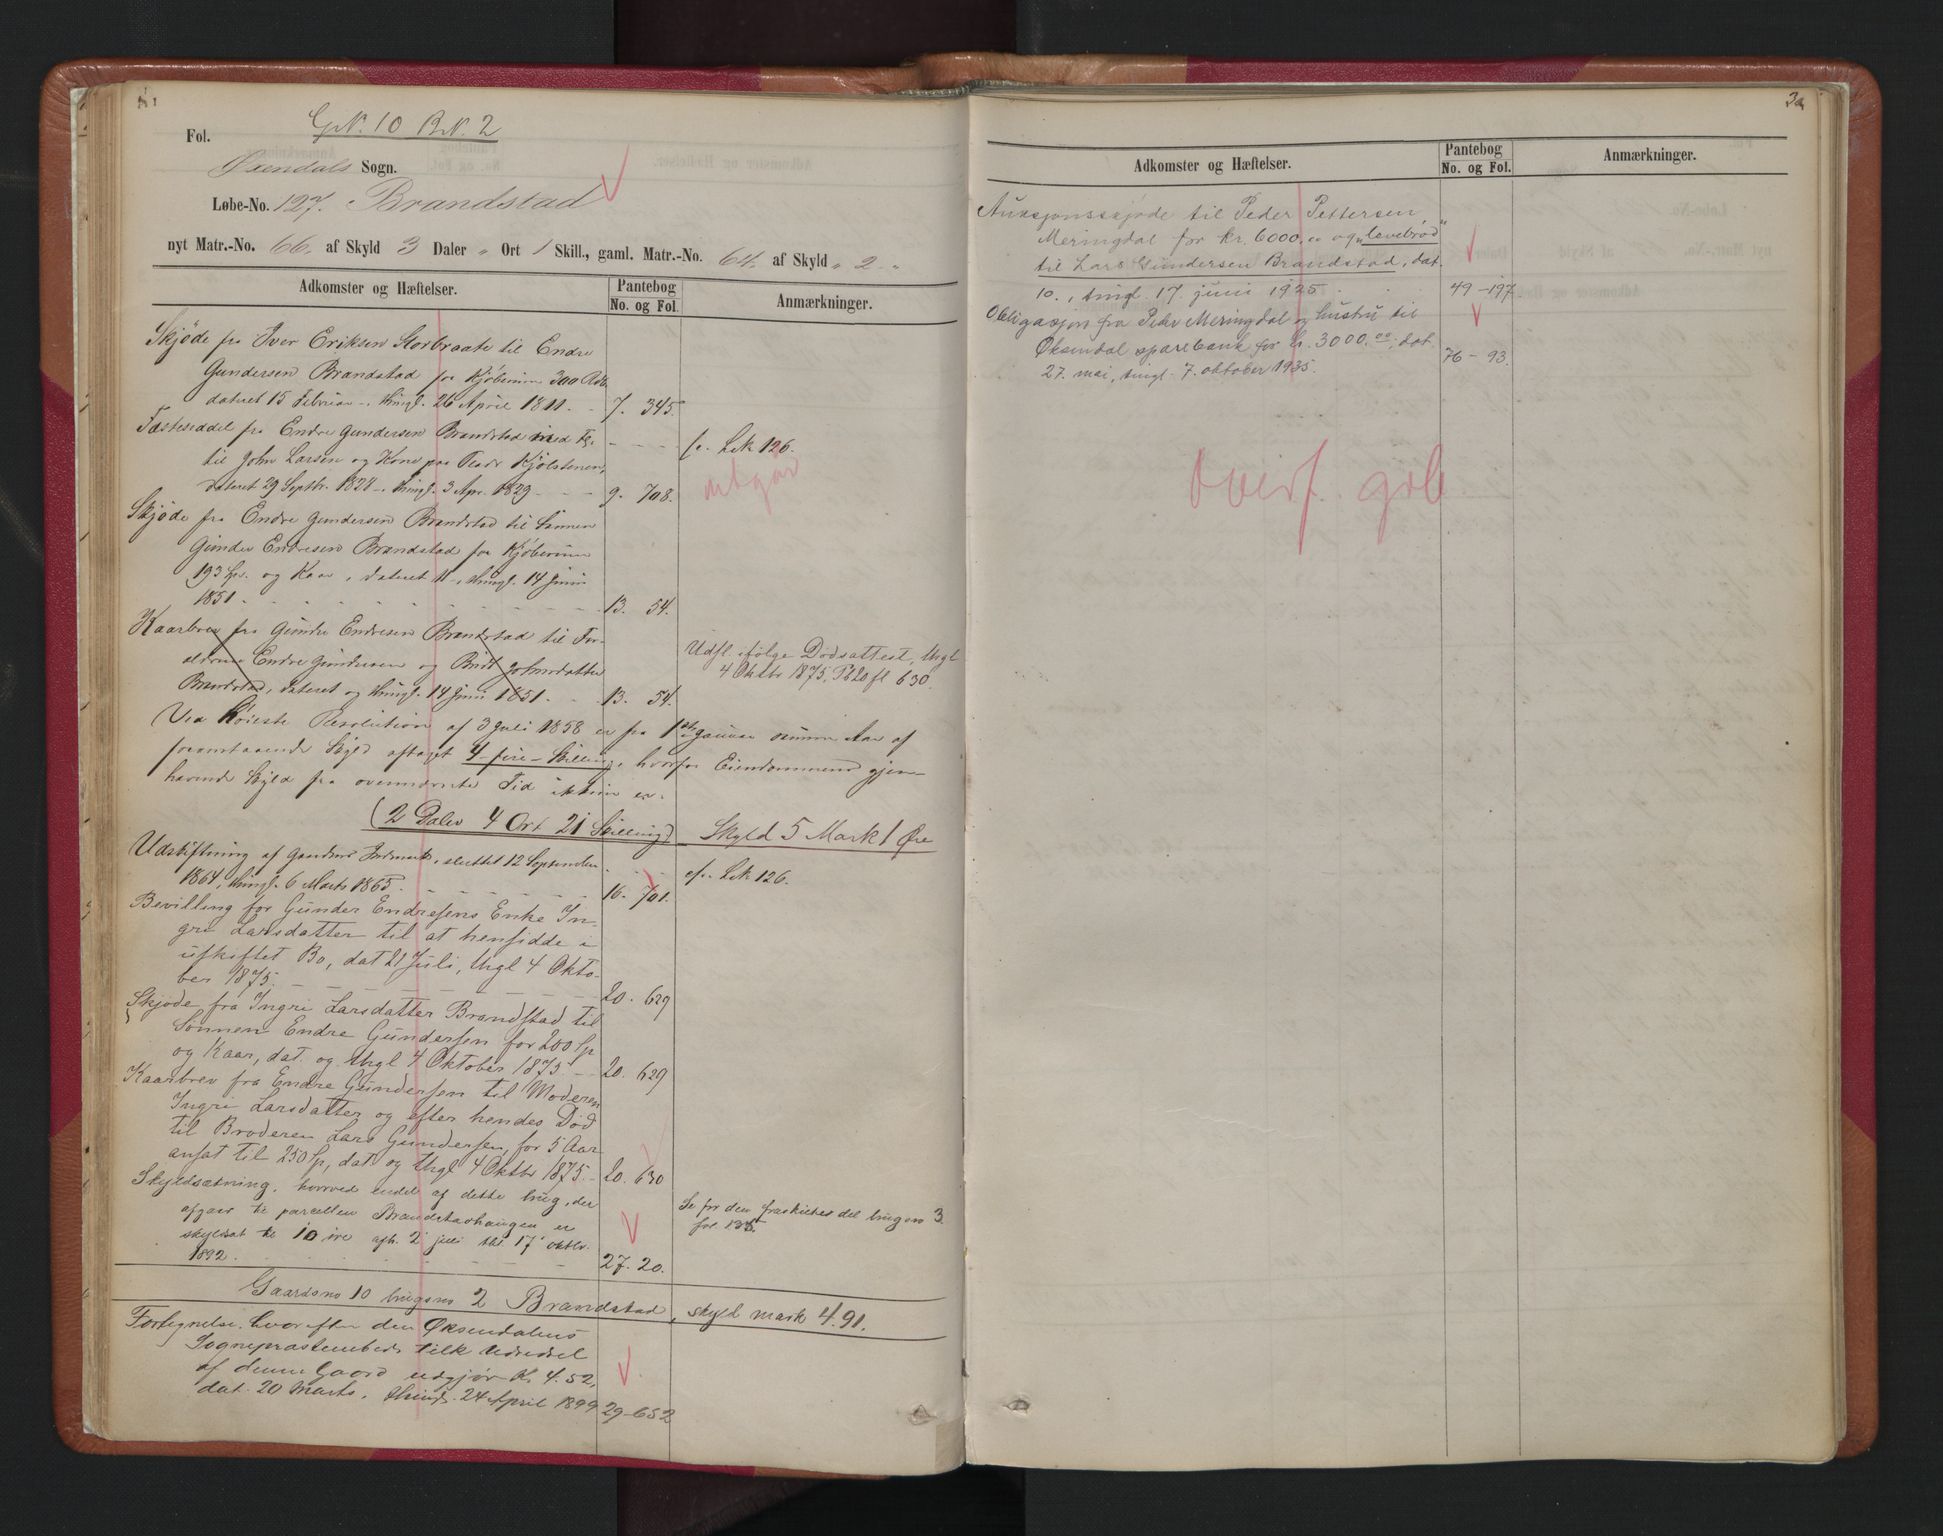 GN. 10 BN. 2
Fol.
Øxendals Sogn.
Løbe-No. 127. Brandstad
nyt Matr.-No. 66. af Skyld 3 Daler „ Ort 1 Skill., gaml. Matr.-No. 64. af Skyld „ 2 - „
Adkomster og Hæftelser. Pantebog No. og Fol. Anmærkninger.
Skjøde fra Iver Eriksen Storbraate til Endre
Gundersen Brandstad for Kjøbesum 300 Rdl.
dateret 15 Februar -, thingl. 26 April 1811. - 7. 345.
Fæsteseddel fra Endre Gundersen Brandstad med Fl.
til John Larsen og Kone paa Plads Kjølstenen, cfr. Lbk 126.
dateret 29 Septbr. 1828 -, thingl. 3 Apr. 1829 - - - 9. 708. utgår
Skjøde fra Endre Gundersen Brandstad til Sønnen
Gunder Endresen Brandstad for Kjøbesum
193 Spr. og Kaar, dateret 11 -, thingl. 14 Juni
1851. - 13. 54.
Kaarbrev fra Gunder Endresen Brandstad til For-
ældrene Endre Gundersen og Brit Johnsdatter
Brandstad, dateret og thingl. 14 Juni 1851. - 13. 54.
Udsl. ifølge Dødsattest, thgl
4 Oktbr 1875, Pb 20 fl 630.
Ved Høieste Resolution af 3 Juli 1858 er fra 1ste Januar samme Aar af
foranstaaende Skyld aftaget 4 - fire - Skilling, hvorfor Eiendommens gjen-
havende Skyld fra ovennævnte Tid ikkun er.
(2 Daler 4 Ort 21 Skilling) Skyld 5 Mark 1 Øre
Udskiftning af Gaardens Indmark, sluttet 12 September
1864, thingl. 6 Marts 1865. - 16. 701. cfr. Lbk 126.
Bevilling for Gunder Endresens Enke In-
gri Larsdatter til at hensidde i
uskiftet Bo, dat 21 Juli, thgl 4 Okto-
ber 1875. - 20. 629
Skjøde fra Ingri Larsdatter Brandstad til
Sønnen Endre Gundersen for 200 Sp
og Kaar, dat. og thgl 4 Oktober 1875. - 20. 629
Kaarbrev fra Endre Gundersen til Moderen
Ingri Larsdatter og efter hendes Død
til Broderen Lars Gundersen for 5 Aar
ansat til 250 Sp, dat og thgl 4 Oktbr 1875. - 20. 630
Skyldsætning, hvorved endel af dette brug, der
afgaar til parcellen Brandstadhaugen er
skyldsat til 10 øre afh. 2 juli thl 17 oktbr.
1892. - 27. 20.
Se for den fraskiltes del brugsno 3.
fol 135
Gaardsno 10 brugsno 2 Brandstad, skyld mark 4.91.
Fortegnelse, hvorefter den Øksendalens
Sognepræstembede tilk Udredsel
af denne Gaard udgjør Kr. 4.52,
dat. 20 Marts, thingl. 24 April 1899 29-652
3a
Adkomster og Hæftelser. Pantebog No. og Fol. Anmærkninger.
Auksjonsskjøde til Peder Pettersen
Meringdal for kr. 6000.00 og „levebrød“
til Lars Gundersen Brandstad, dat.
10., tingl. 17. juni 1925. 49-197
Obligasjon fra Peder Meringdal og hustru til
Øksendal sparebank for kr. 3000.00, dat.
27. mai, tingl. 7. oktober 1935. 76-93.
Overf. gnb